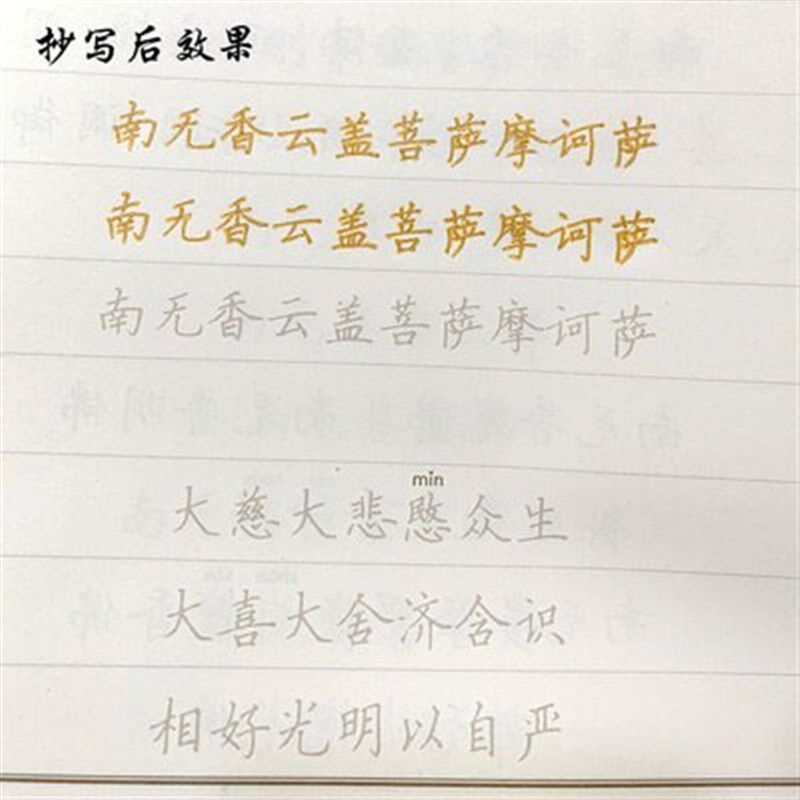 抄写后效果
南无香云盖菩萨摩诃萨
南无香云盖菩萨摩诃萨
南无香云盖菩萨摩诃萨
mǐn
大慈大悲愍众生
大喜大舍济含识
相好光明以自严